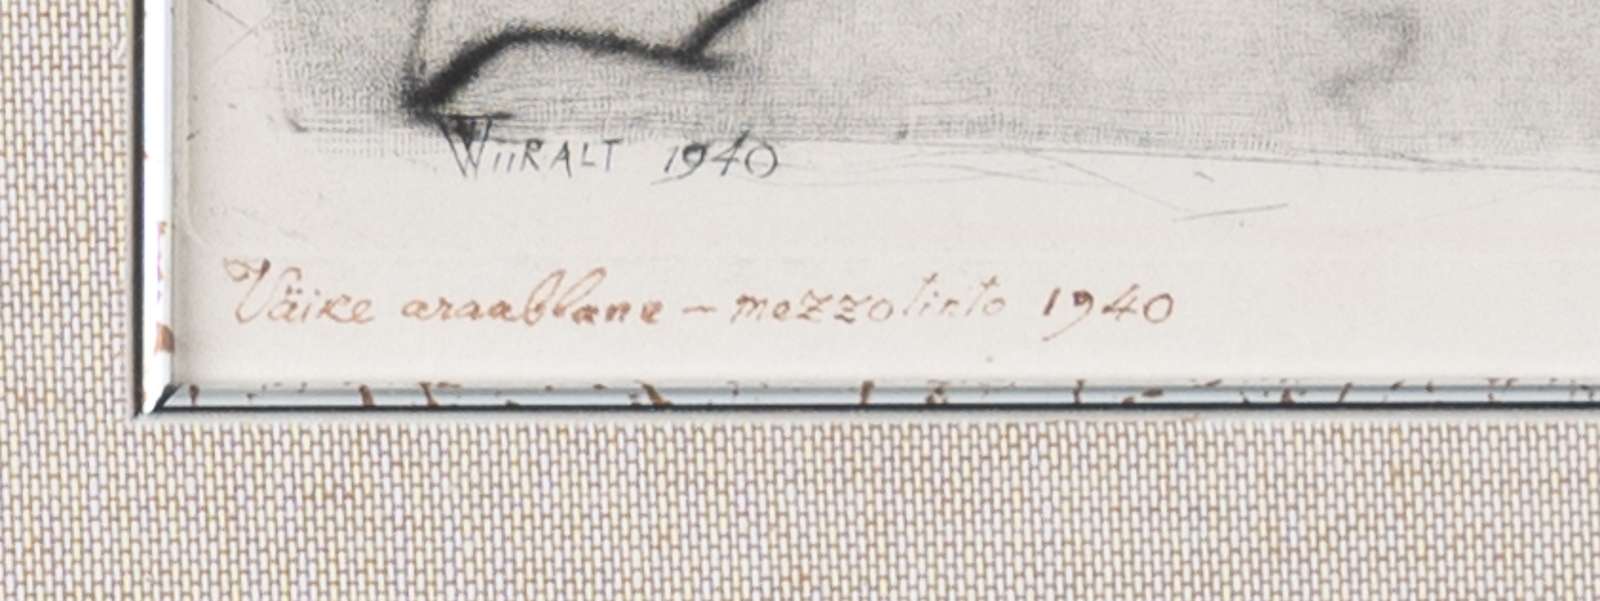 WiiRALT 1940
Väike araablane - mezzotinto 1940